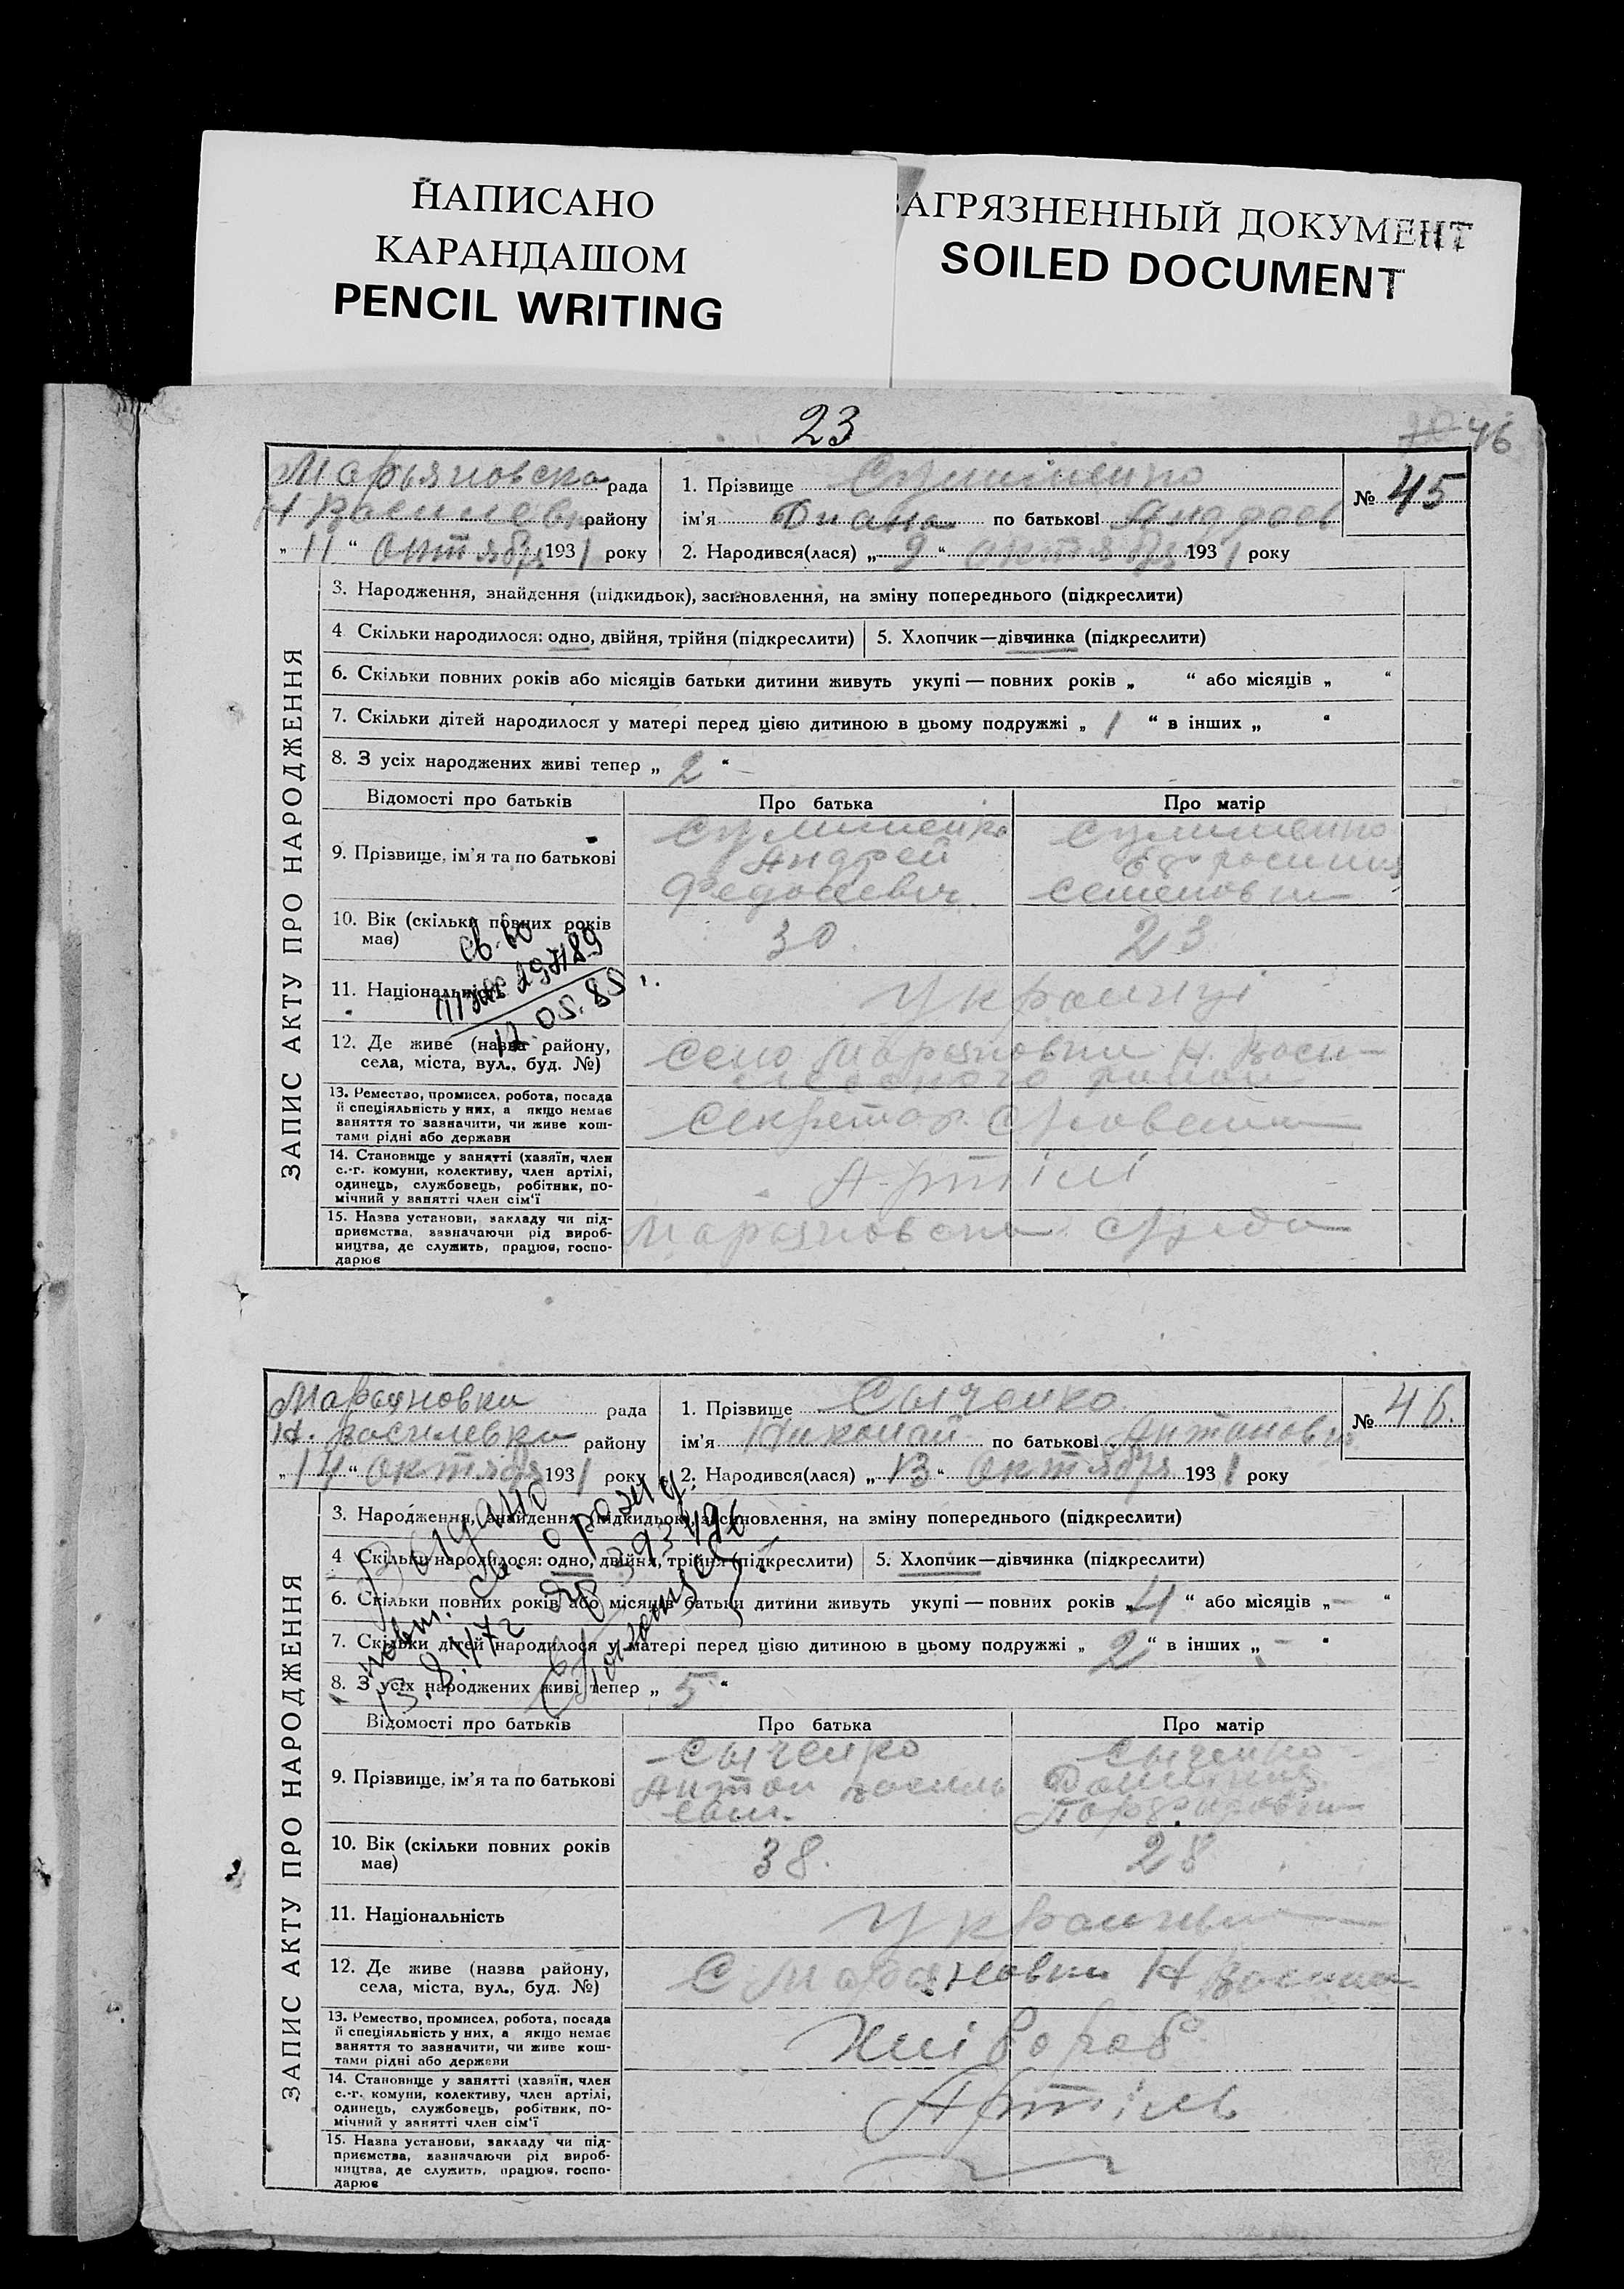 НАПИСАНО
КАРАНДАШОМ
PENCIL WRITING
ЗАГРЯЗНЕННЫЙ ДОКУМЕНТ
SOILED DOCUMENT
23
46
рада
району
„ 11 “ Октября 1931 року
1. Прізвище
ім'я Диана по батькові Андреев
2. Народився(лася) „ 9 “ октября 1931 року
№ 45
ЗАПИС АКТУ ПРО НАРОДЖЕННЯ
3. Народження, знайдення (підкидьок), засновлення, на зміну попереднього (підкреслити)
4 Скільки народилося: одно, двійня, трійня (підкреслити)
5. Хлопчик—дівчинка (підкреслити)
6. Скільки повних років або місяців батьки дитини живуть укупі — повних років „ “ або місяців „ “
7. Скільки дітей народилося у матері перед цією дитиною в цьому подружжі „ 1 “ в інших „ “
8. З усіх народжених живі тепер „ 2 “
Відомості про батьків
Про батька
Про матір
9. Прізвище, ім'я та по батькові
Андрей
10. Вік (скільки повних років
має)
30
23
11. Національність
Українці
17.05.85
12. Де живе (назва району,
села, міста, вул., буд. №)
Село
13. Ремество, промисел, робота, посада
й спеціяльність у них, а якщо немає
заняття то зазначити, чи живе кош-
тами рідні або держави
14. Становище у занятті (хазяїн, член
с.-г. комуни, колективу, член артілі,
одинець, службовець, робітник, по-
мічний у занятті член сім'ї
Артілі
15. Назва установи, закладу чи під-
приємства, зазначаючи рід вироб-
ництва, де служить, працює, госпо-
дарює
Марьяновка рада
Н. Василевка району
„ 14 “ Октября 1931 року
1. Прізвище Сыченко
ім'я Николай по батькові Антонов
2. Народився(лася) „ 13 “ Октября 1931 року
№ 46.
ЗАПИС АКТУ ПРО НАРОДЖЕННЯ
3. Народження, знайдення (підкидьок), засновлення, на зміну попереднього (підкреслити)
4 Скільки народилося: одно, двійня, трійня (підкреслити)
5. Хлопчик—дівчинка (підкреслити)
6. Скільки повних років або місяців батьки дитини живуть укупі — повних років „ 4 “ або місяців „ – “
7. Скільки дітей народилося у матері перед цією дитиною в цьому подружжі „ 2 “ в інших „ – “
8. З усіх народжених живі тепер „ 5 “
Відомості про батьків
Про батька
Про матір
9. Прізвище, ім'я та по батькові
Сыченко
Антон
Сыченко
10. Вік (скільки повних років
має)
38.
28
11. Національність
12. Де живе (назва району,
села, міста, вул., буд. №)
13. Ремество, промисел, робота, посада
й спеціяльність у них, а якщо немає
заняття то зазначити, чи живе кош-
тами рідні або держави
Хлібороб
14. Становище у занятті (хазяїн, член
с.-г. комуни, колективу, член артілі,
одинець, службовець, робітник, по-
мічний у занятті член сім'ї
Артіль
15. Назва установи, закладу чи під-
приємства, зазначаючи рід вироб-
ництва, де служить, працює, госпо-
дарює